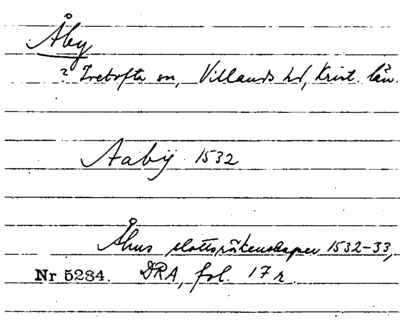 Åby
? Ivetofta sn, Villands hd, Krist. län.
Aabÿ 1532
Åhus slottsräkenskaper 1532-33,
Nr 5284. DRA, fol. 17 r.